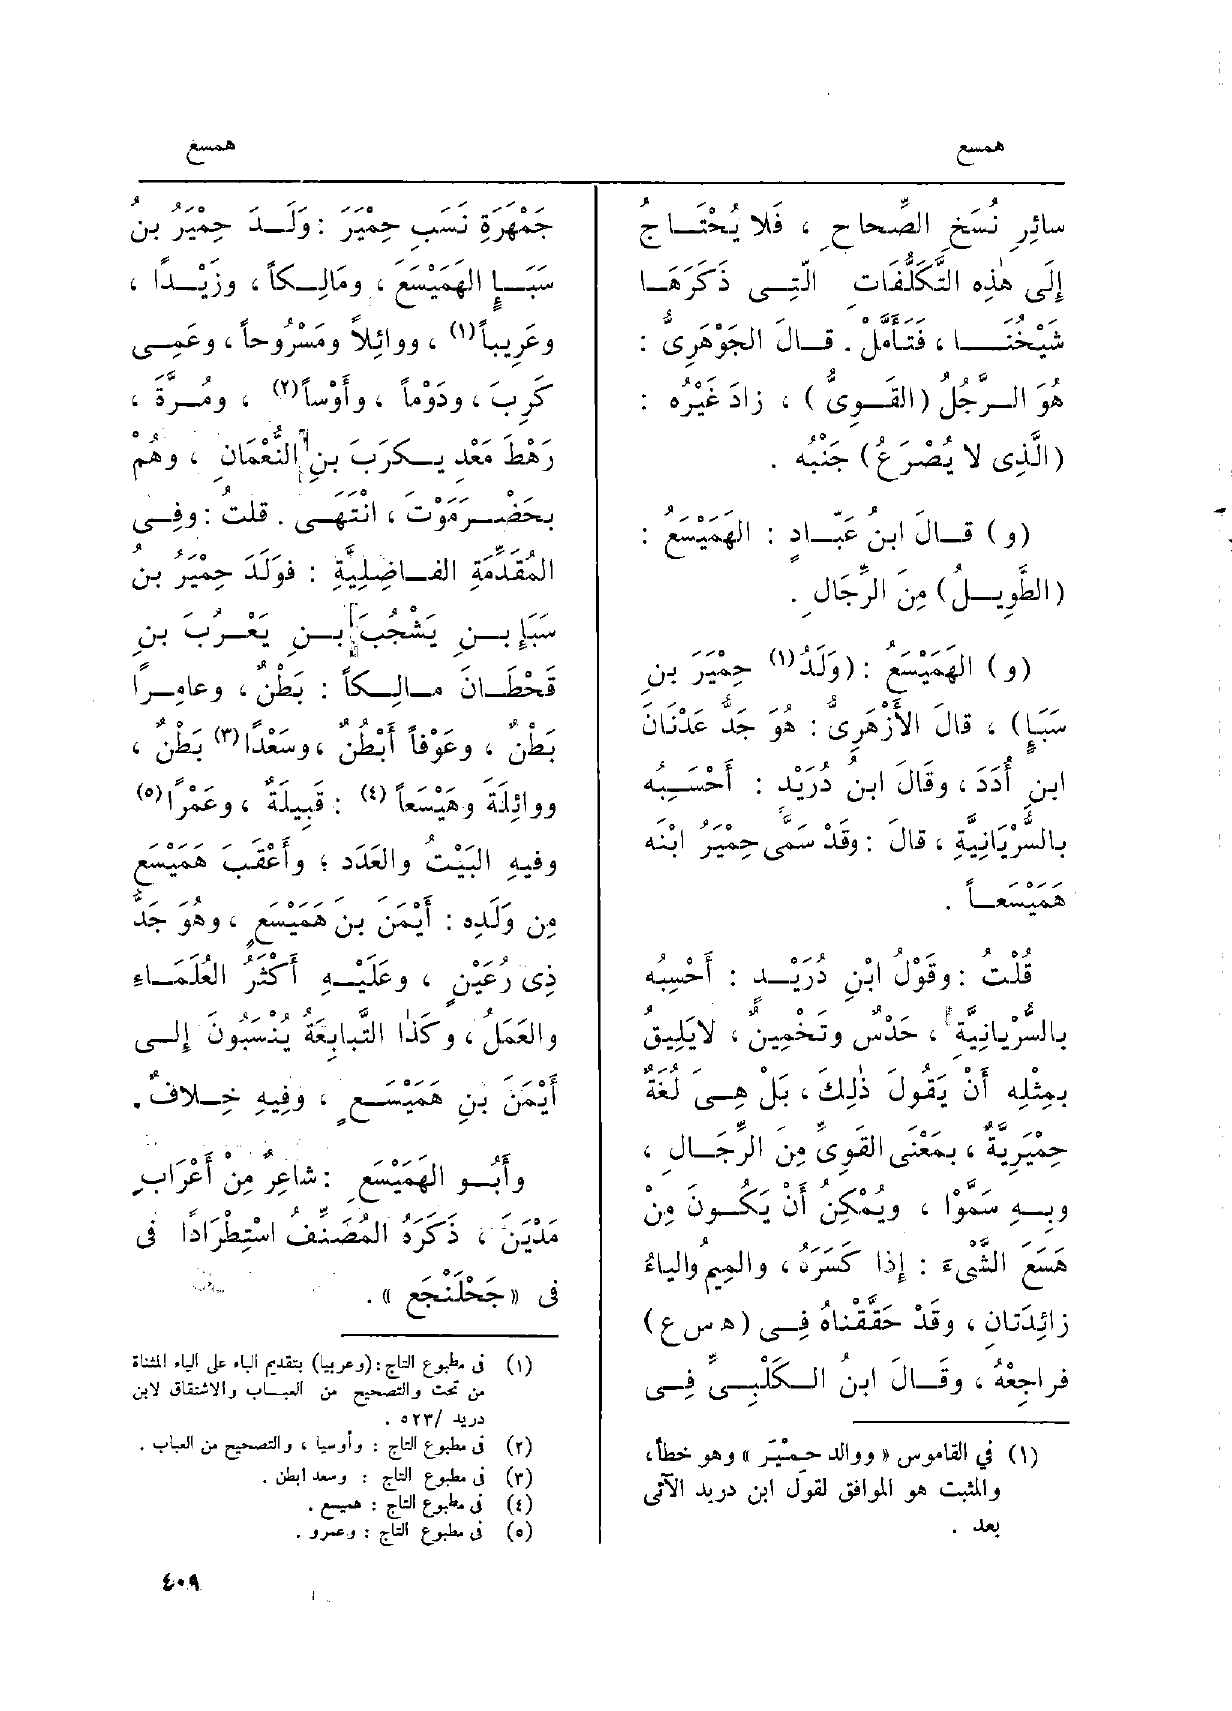 همسع
سائِرِ نُسَخِ الصِّحاحِ ، فَلا يُحْتَاجُ
إِلَى هٰذِه التَّكَلُّفَاتِ الَّتِى ذَكَرَهَا
شَيْخُنَا ، فتَأَمَّلْ . قالَ الجَوْهَرِىُّ :
هُوَ الرَّجُلُ (القَوِىُّ) ، زادَ غَيْرُه :
(الَّذِى لا يُصْرَعُ) جَنْبُه .
(و) قالَ ابنُ عَبّادٍ : الهَمَيْسَعُ :
(الطَّوِيلُ) مِنَ الرِّجَالِ .
(و) الهَمَيْسَعُ : (وَلَدُ(١) حِمْيَرَ بنِ
سَبَإٍ) ، قالَ الأَزْهَرِىُّ : هُوَ جَدُّ عَدْنَانَ
ابنِ أُدَدَ ، وقالَ ابنُ دُرَيْدٍ : أَحْسَبُه
بالسُّرْيَانِيَّةِ ، قالَ : وقَدْ سَمَّى حِمْيَرُ ابْنَه
هَمَيْسَعاً .
قُلْتُ : وقَوْلُ ابنِ دُرَيْدٍ : أَحْسِبُه
بالسُّرْيانِيَّةِ ، حَدْسٌ وتَخْمِينٌ ، لايَلِيقُ
بمِثْلِه أَنْ يَقُولَ ذٰلِكَ ، بَلْ هِىَ لُغَةٌ
حِمْيَرِيَّةٌ ، بمَعْنَى القَوِىِّ مِنَ الرِّجَالِ ،
وبِهِ سَمَّوْا ، ويُمْكِنُ أَنْ يَكُونَ مِنْ
هَسَعَ الشَّىْءَ : إِذا كَسَرَهُ ، والمِيمُ والياءُ
زائِدَتانِ ، وقَدْ حَقَّقْناهُ فِى (ه س ع)
فراجِعْهُ ، وقَالَ ابنُ الكَلْبِىِّ فِى
(١) في القاموس «ووالد حِمْيَر» وهو خطأ،
والمثبت هو الموافق لقول ابن دريد الآتى
بعد .
همسع
جَمْهَرَةِ نَسَبِ حِمْيَرَ : وَلَدَ حِمْيَرُ بنُ
سَبَإٍ الهَمَيْسَعَ ، ومَالِكاً ، وزَيْداً ،
وعَرِيباً(١) ، ووائِلاً ومَسْرُوحاً ، وعَمِى
كَرِبَ ، ودَوْماً ، وأَوْساً(٢) ، ومُرَّةَ ،
رَهْطَ مَعْدِ يكَرِبَ بنِ النُّعْمَانِ ، وهُمْ
بحَضْرَمَوْتَ ، انْتَهَى . قلتُ : وفِى
المُقَدِّمَةِ الفاضِلِيَّةِ : فوَلَدَ حِمْيَرُ بنُ
سَبَإِ بنِ يَشْجُبَ بنِ يَعْرُبَ بنِ
قَحْطَانَ مالِكاً : بَطْنٌ ، وعامِراً
بَطْنٌ ، وعَوْفاً أَبْطُنٌ ، وسَعْدًا(٣) بَطْنٌ ،
ووائِلَةَ وهَيْسَعاً(٤) : قَبِيلَةٌ ، وعَمْرًا(٥)
وفيهِ البَيْتُ والعَدَد ؛ وأَعْقَبَ هَمَيْسَع
مِن وَلَدِه : أَيْمَنَ بنَ هَمَيْسَعٍ ، وهُوَ جَدُّ
ذِى رُعَيْنٍ ، وعَلَيْهِ أَكْثَرُ العُلَمَاءِ
والعَمَلُ ، وكَذا التَّبابِعَةُ يُنْسَبُونَ إِلى
أَيْمَنَ بنِ هَمَيْسَعٍ ، وفِيهِ خِلافٌ .
وأَبُو الهَمَيْسَعِ : شاعِرٌ مِنْ أَعْرَابِ
مَدْيَنَ ، ذَكَرَهُ المُصَنِّفُ اسْتِطْرَادًا فى
فى «جَحْلَنْجَع» .
(١) فى مطبوع التاج : (وعربيا) بتقديم الباء على الياء المثناة
من تحت والتصحيح من العباب والاشتقاق لابن
دريد /٥٢٣ .
(٢) فى مطبوع التاج : وأوسيا ، والتصحيح من العباب .
(٣) فى مطبوع التاج : وسعد ابطن .
(٤) فى مطبوع التاج : هميسع .
(٥) فى مطبوع التاج : وعمرو .
٤٠٩